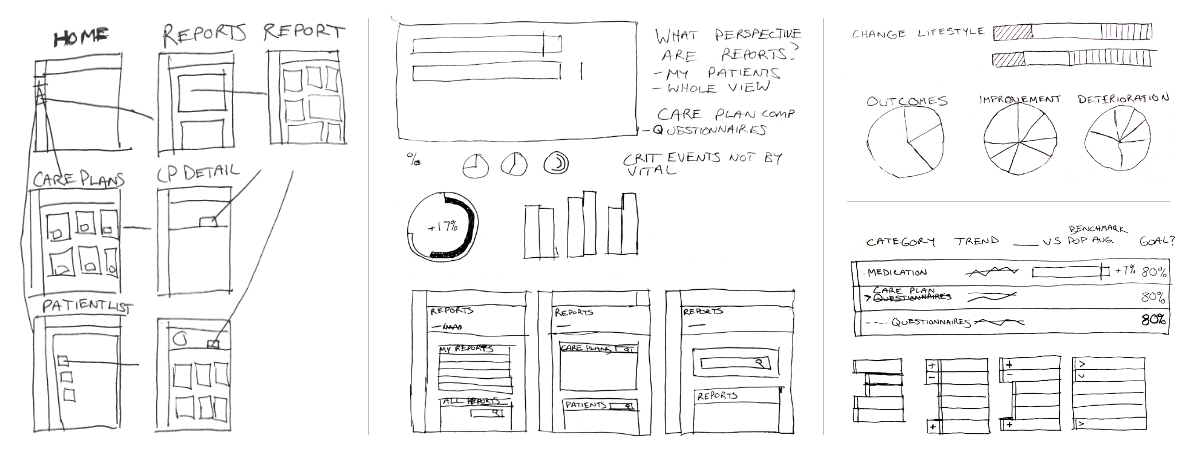 HOME
REPORTS
REPORT
CARE PLANS
CP DETAIL
PATIENT LIST
WHAT PERSPECTIVE
ARE REPORTS?
- MY PATIENTS
- WHOLE VIEW
CARE PLAN COMP
- QUESTIONNAIRES
%
CRIT EVENTS NOT BY
VITAL
+17%
REPORTS
MY REPORTS
ALL REPORTS
REPORTS
CARE PLANS
PATIENTS
REPORTS
REPORTS
CHANGE LIFESTYLE
OUTCOMES
IMPROVEMENT
DETERIORATION
BENCHMARK
CATEGORY TREND ___ VS POP AVG. GOAL?
MEDICATION +7% 80%
CARE PLAN
> QUESTIONNAIRES 80%
---- QUESTIONNAIRES 80%
+
-
+
+
-
+
>
v
>